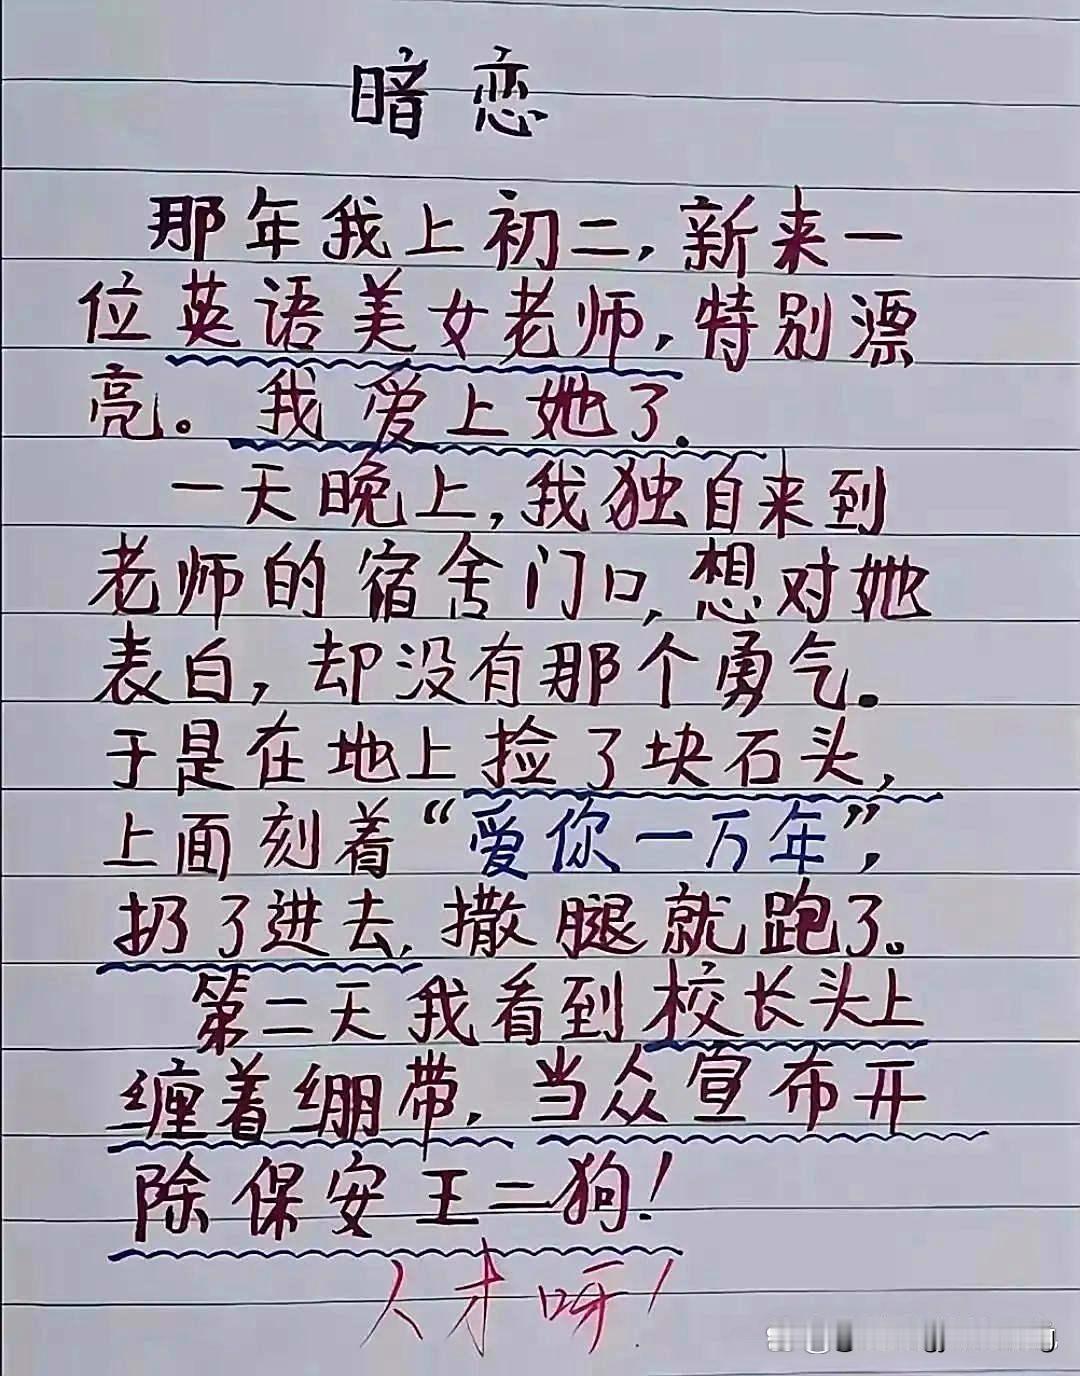 暗恋
那年我上初二,新来一
位英语美女老师,特别漂
亮。我爱上她了.
一天晚上,我独自来到
老师的宿舍门口,想对她
表白,却没有那个勇气。
于是在地上捡了块石头,
上面刻着“爱你一万年”,
扔了进去,撒腿就跑了。
第二天我看到校长头上
缠着绷带,当众宣布开
除保安王二狗!
人才呀!